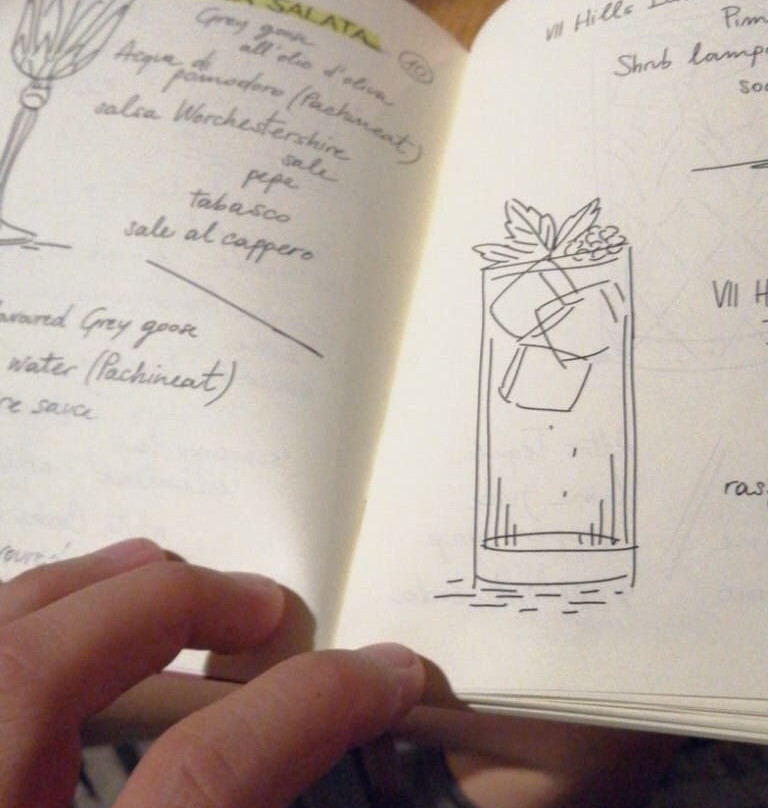 SALATA
10
Grey goose
all'olio d'oliva
Acqua di
pomodoro (Pachineat)
salsa Worchestershire
sale
pepe
tabasco
sale al cappero
Grey goose
water (Pachineat)
sauce
VII Hills
Pim
Shrub lamp
so
VII H
ras